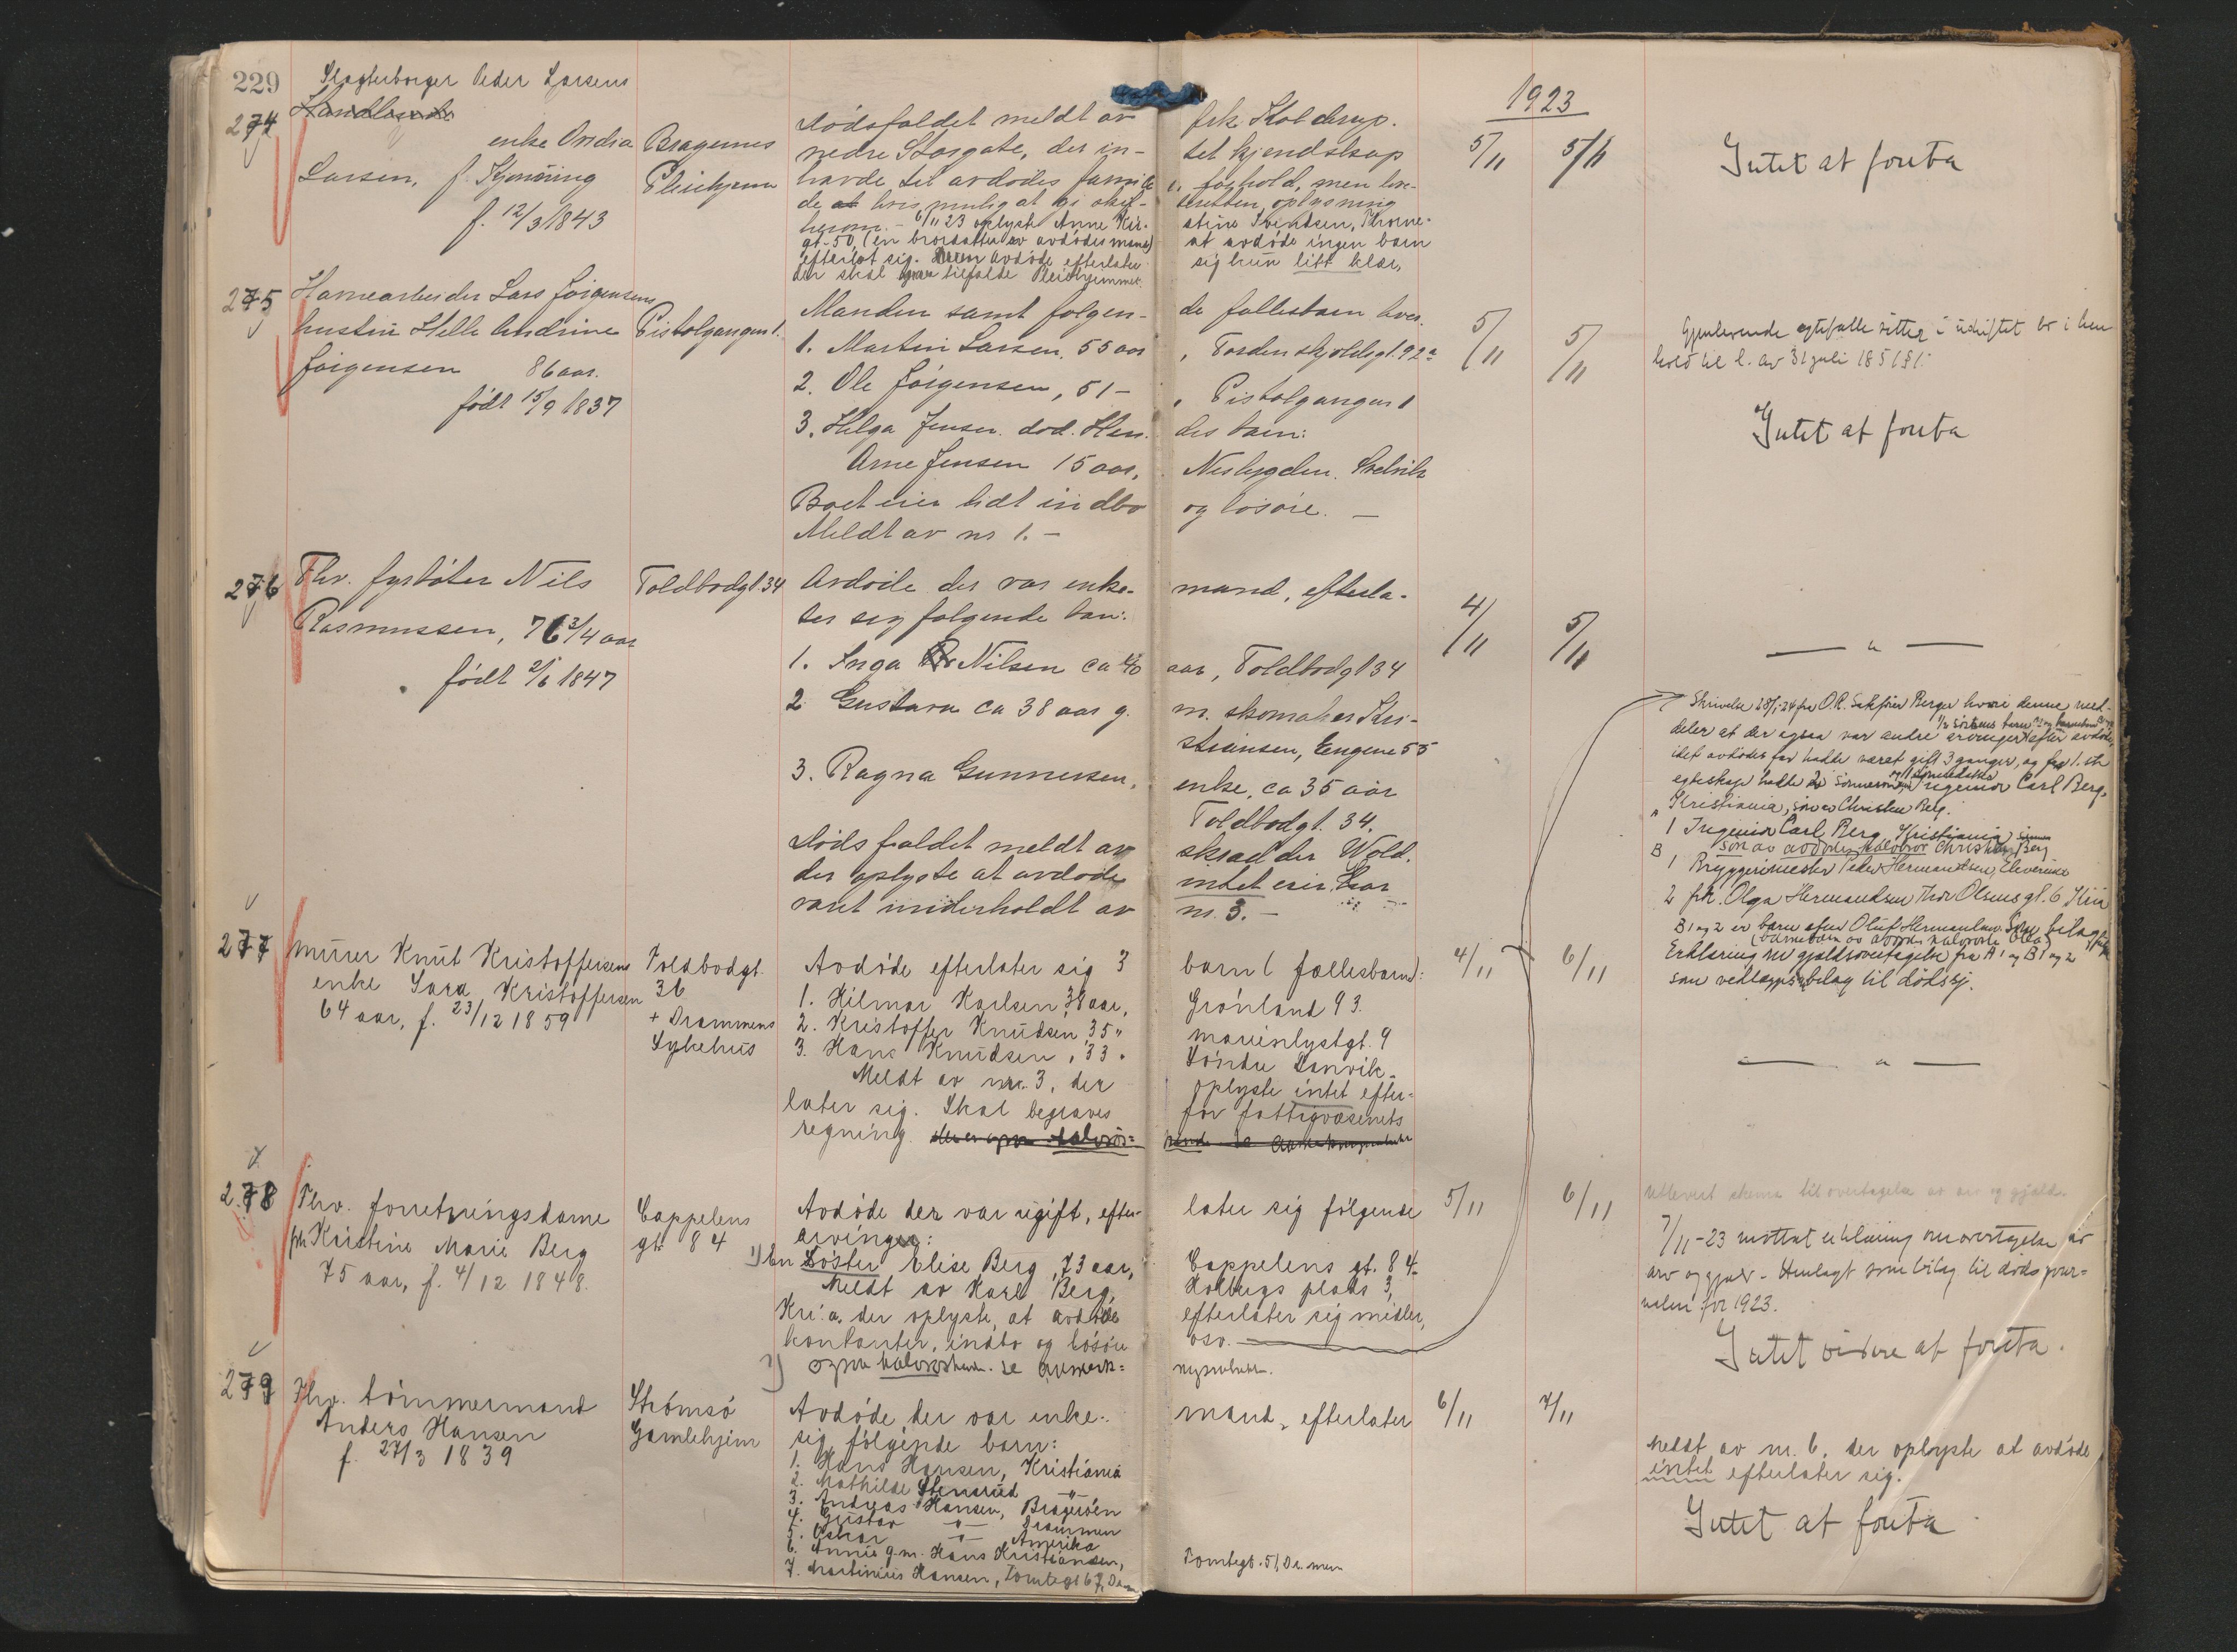 229
1923
274
Slagterborger Peder Larsens
enke Andrea
Larsen, f. Kjønning
f. 12/3 1843
Bragernes
Pleiehjem
Dødsfaldet meldt av frk. Kolderup.
nedre Storgate, der in- tet kjendskap
havde til avdødes famili eforhold, men lov-
de hvis mulig at gi skif- teretten oplysning
herom. - 6/11 23 oplyste Anne Kir- stine Svendsen, Thorne-
gt. 50, (en brordatter av avdødes mand) at avdøde ingen barn
efterlot sig. Avdøde efterlater sig kun litt klær,
der skal tilfalde Pleiehjemmet.
5/11 5/11
Intet at foreta
275
Havnearbeider Lars Jørgensens
hustru Helle Andrine
Jørgensen 86 aar.
født 15/9 1837
Pistolgangen 1.
Manden samt følgen- de fællesbarn hver.
1. Martin Larsen, 55 aar, Tordenskjoldsgt. 92a
2. Ole Jørgensen, 51 - , Pistolgangen 1
3. Helga Jensen død. Hen- des barn:
Arne Jensen 15 aar, Nesbygden. Svelvik
Boet eier lidt indbo og løsøre. -
Meldt av nr 1. -
5/11 5/11
Gjenlevende egtefælle sitter i uskiftet bo i hen-
hold til l. av 31 juli 1851 § 1.
Intet at foreta
276
Fhv. fyrbøter Nils
Rasmussen, 76 3/4 aar
født 2/6 1847
Toldbodgt. 34
Avdøde der var enke- mand, efterla-
ter sig følgende barn:
1. Inga Nilsen ca 40 aar, Toldbodgt 34
2. Gustava ca 38 aar g. m. skomaker Kri-
stiansen, Engene 55
3. Ragna Gunnersen, enke, ca 35 aar
Toldbodgt. 34.
Dødsfaldet meldt av skrædder Wold.
der oplyste at avdøde intet eier, har
vært underholdt av nr. 3. -
4/11 5/11
— " —
277
Murer Knut Kristoffersens
enke Sara Kristoffersen
64 aar, f. 23/12 1859
Toldbodgt.
36
+ Drammens
Sykehus
Avdøde efterlater sig 3 barn (fællesbarn):
1. Hilmar Karlsen, 38 aar, Grønland 93.
2. Kristoffer Knudsen, 35 " Marienlystgt. 9
3. Hans Knudsen, 33 " Søndre Danvik.
Meldt av nr. 3, der oplyste intet efter-
later sig. Skal begraves for fattigvæsenets
regning.
4/11 6/11
— " —
Skrivelse 28/1-24 fra O.R. Sakfører Berger hvori denne med-
deler at der ogsaa var andre arvinger efter avdøde,
idet avdødes far hadde været gift 3 ganger, og fra 1. ste
egteskap hadde 2 ingeniør Carl Berg,
Kristiania, søn av Christen Berg.
1 Ingeniør Carl Berg, Kristiania
søn av avdødes halvbror Christen Berg
B 1 Bryggerimester Peder Hermandsen, Elverum
2 frk. Olga Hermandsen Thor Olsens gt. 6 Kria
B 1 og 2 er barn efter Oluf Hermandsen
Erklæring om gjeldsovertagelse fra A 1 og B 1 og 2
som vedlægges bilag til dødsj.
278
Fhv. forretningsdame
frk Kristine Marie Berg
75 aar, f. 4/12 1848.
Cappelens
gt. 84
Avdøde der var ugift, efter- later sig følgende
arvinger:
1) En Søster Elise Berg, 73 aar, Cappelens gt. 84.
Meldt av Karl Berg, Holbergs plads 3,
Kr:a, der oplyste, at avdøde efterlater sig midler,
kontanter, indbo og løsøre osv.
1) Ogsaa halvsøsken. Se anmerk- ningsrubrik.
5/11 6/11
Utlevert skema til overtagelse av arv og gjeld.
7/11-23 mottat erklæring om overtagelse av
arv og gjeld. - Henlagt som bilag til dødsjour-
nalen for 1923.
Intet videre at foreta.
279
Fhv. tømmermand
Anders Hansen
f. 27/3 1839
Strømsø
Gamlehjem
Avdøde der var enke- mand, efterlater
sig følgende barn:
1. Hans Hansen, Kristiania
2. Mathilde Stensrud — " —
3. Andreas Hansen, Bragerøen
4. Gustav — " — Drammen
5. Oskar — " — Amerika
6. Annie g.m. Hans Kristiansen, Tomtegt. 51, Dr.men
7. Martinius Hansen, Tomtegt 67, Dr.men
6/11 7/11
Meldt av nr. 6, der oplyste at avdøde
intet efterlater sig.
Intet at foreta